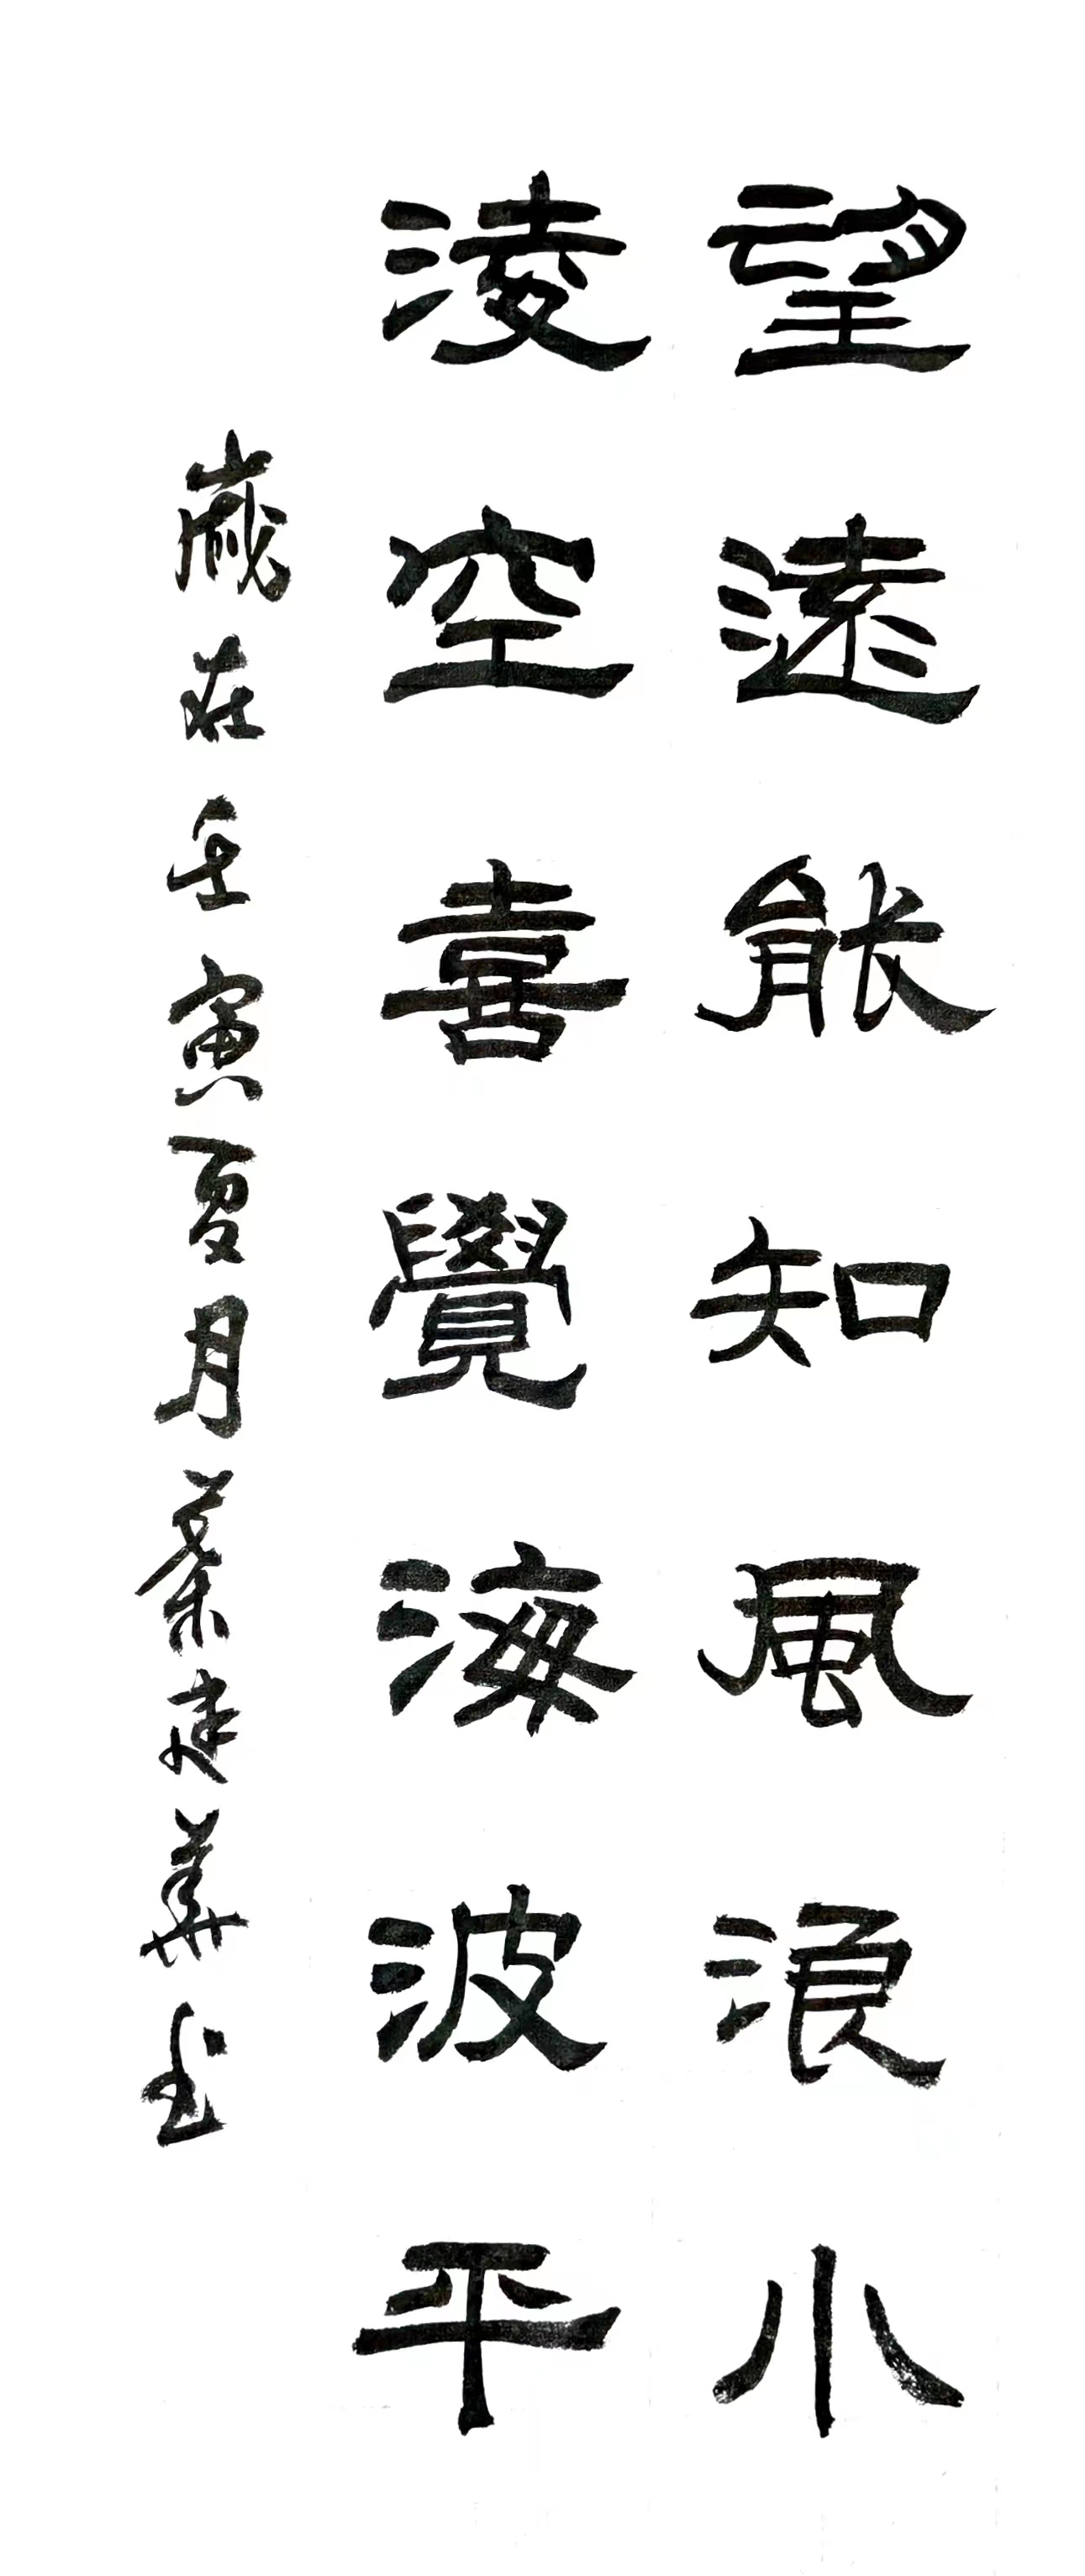 望遠能知風浪小
淩空喜覺海波平
歲在壬寅夏月葉建華書